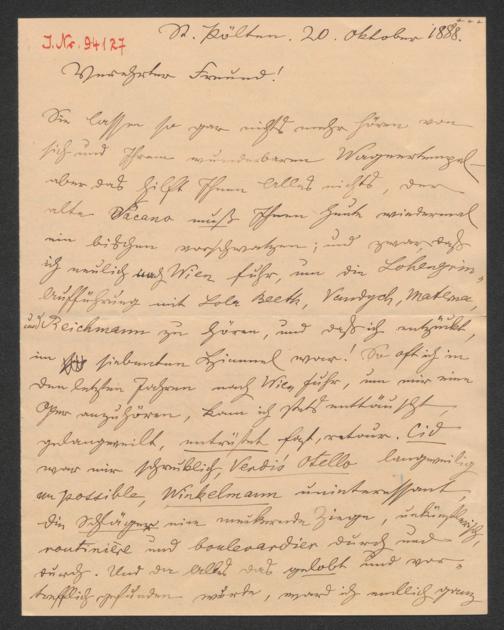 J.Nr. 94/27
St. Pölten. 20. Oktober 1888.
Verehrter Freund!
Sie lassen so gar nichts mehr hören von
sich und Ihrem wunderbaren Wagnertempel
aber das hilft Ihnen Alles nichts, der
alte muß Ihnen heute wiedermal
ein bischen vorschwatzen; und zwar daß
ich neulich nach Wien fuhr, um die Lohengrin-
Aufführung mit Lola Beeth, Vandyck, Materna,
und Reichmann zu hören, und daß ich entzückt,
im siebenten Himmel war! So oft ich in
den letzten Jahren nach Wien fuhr, um mir eine
Oper anzuhören, kam ich stets enttäuscht,
gelangweilt, entrüstet fast, retour. Cid
war mir schrecklich, Verdi's Otello langweilig
au possible, Winkelmann uninteressant,
die Schläger eine meckernde Ziege, unkünstlerisch,
routinière und boulevardier durch und
durch. Und da Alles das gelobt und vor-
trefflich gefunden wurde, ward ich endlich ganz